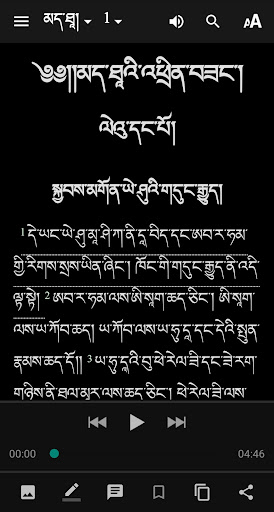 མད་ཐཱ། 1
༄༅།།མད་ཐཱའི་འཕྲིན་བཟང་།
ལེའུ་དང་པོ།
སྐྱབས་མགོན་ཡེ་ཤུའི་གདུང་རྒྱུད།
1 དེ་ཡང་ཡེ་ཤུ་མཱ་ཤི་ཀ་ནི་དཱ་བིད་དང་ཨབ་ར་ཧམ་
གྱི་རིགས་སྲས་ཡིན་ཞིང་། ཁོང་གི་གདུང་རྒྱུད་ནི་འདི་
ལྟ་སྟེ། 2 ཨབ་ར་ཧམ་ལས་ཨི་སཱག་ཆད་ཅིང་། ཨི་སཱག་
ལས་ཡ་ཀོབ་ཆད། ཡ་ཀོབ་ལས་ཡ་ཧུ་དཱ་དང་དེའི་སྤུན་
རྣམས་ཆད་དོ།། 3 ཡ་ཧུ་དཱའི་བུ་ཕེ་རེལ་ཟི་དང་ཟེ་རག་
གཉིས་ནི་ཐལ་མར་ལས་ཆད་ཅིང་། ཕེ་རེལ་ཟི་ལས་
00:00 04:46